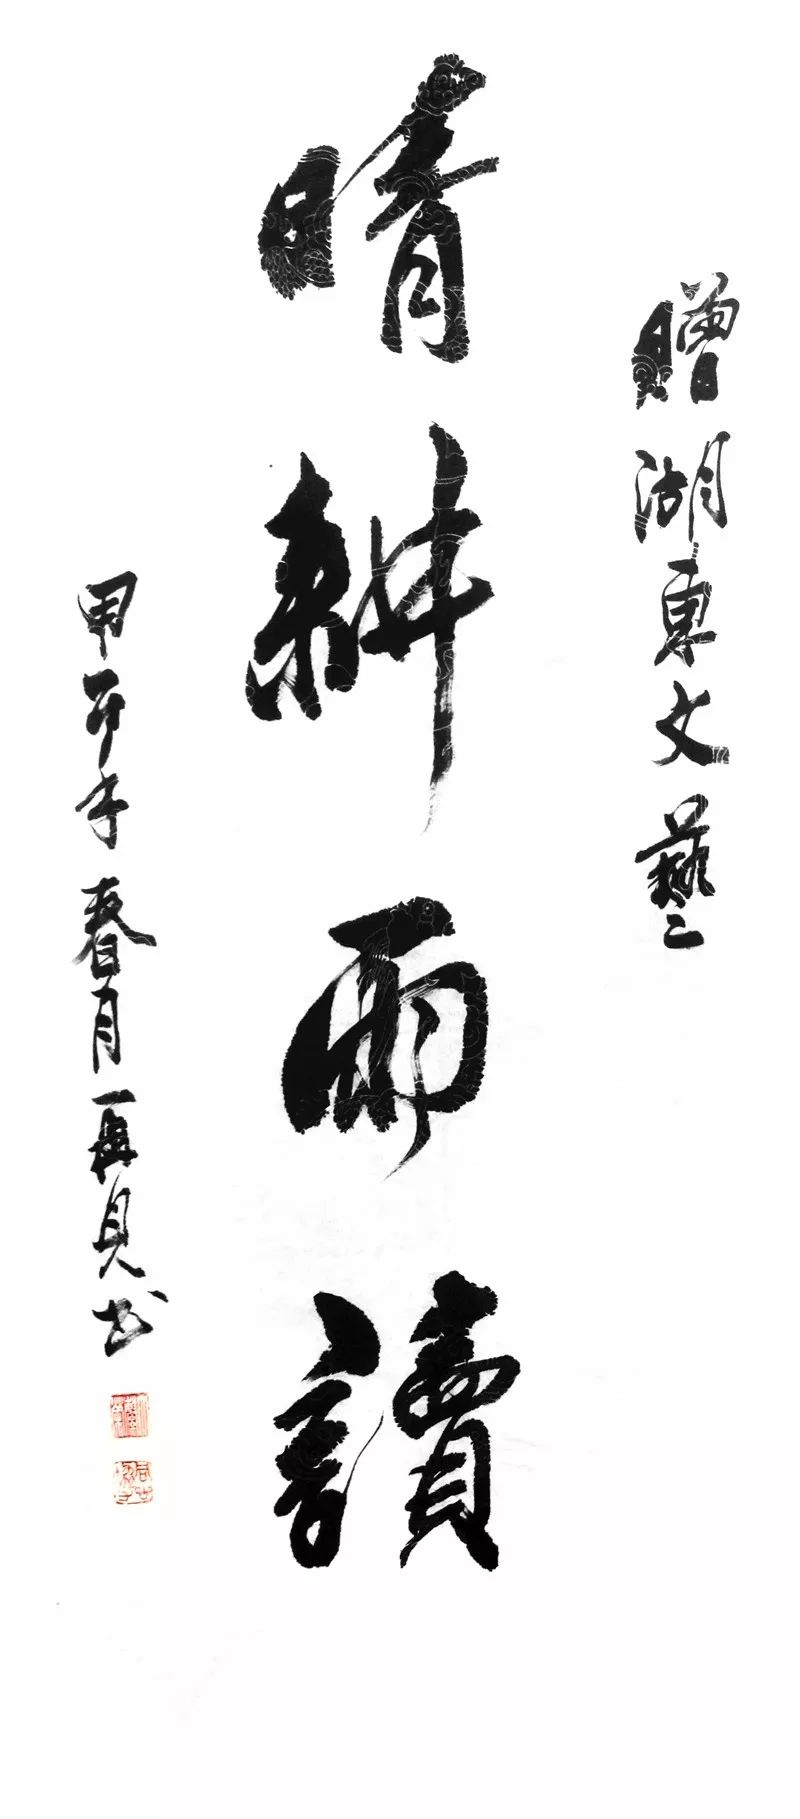 贈湖東文藝
晴耕雨讀
甲午年春月 貝书